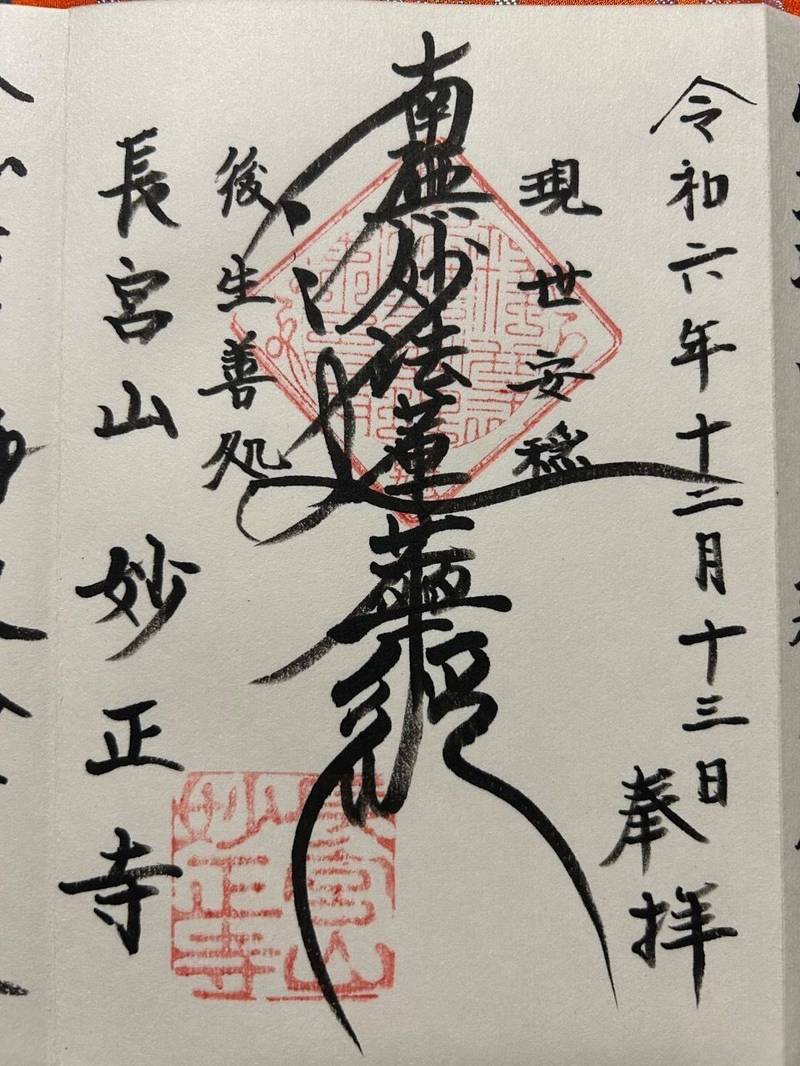 令和六年十二月十三日
奉拝
現世安穏
南無妙法蓮華経
後生善処
長宮山 妙正寺
長宮山
妙正寺